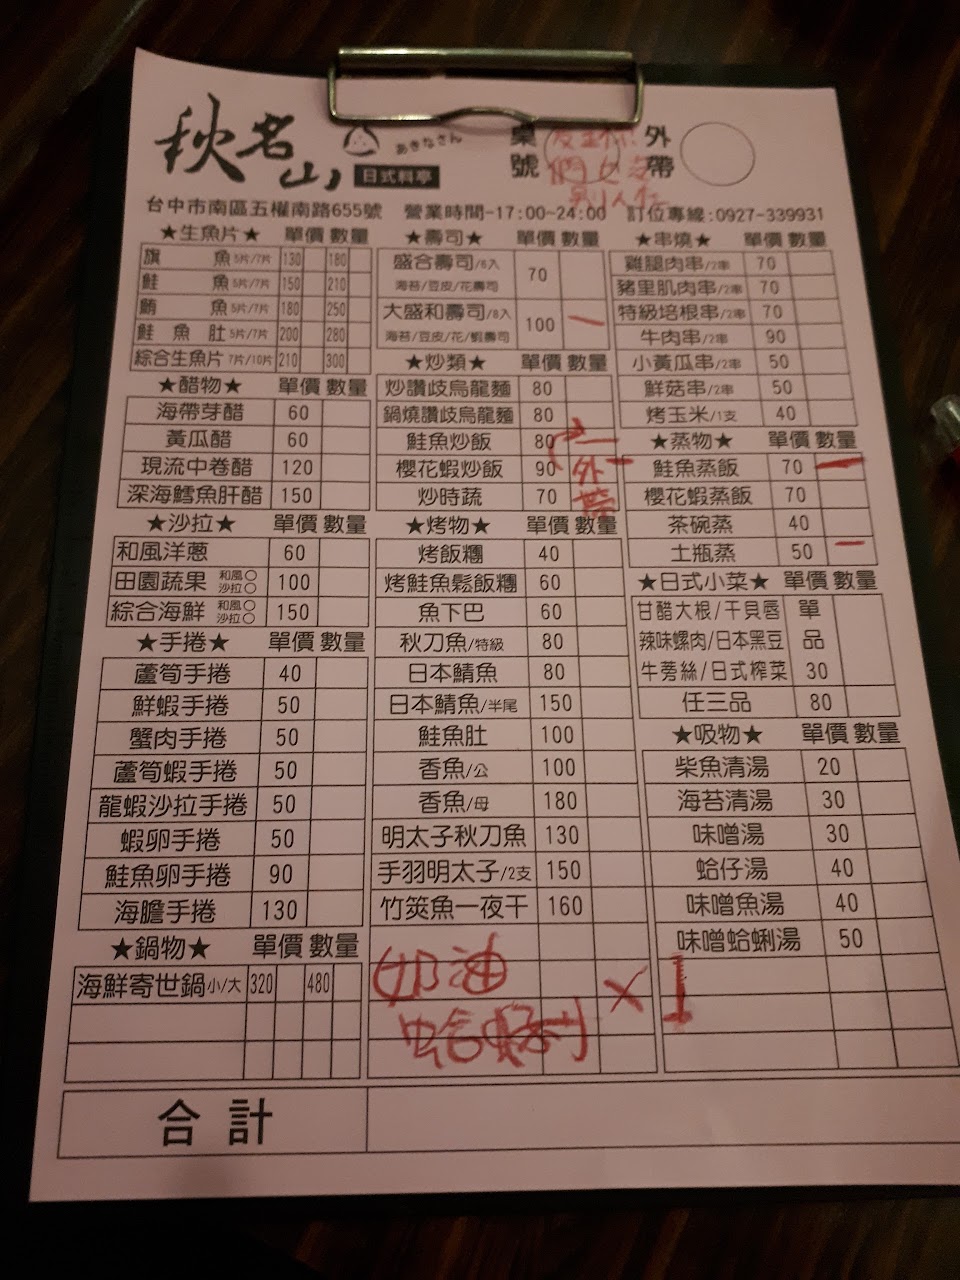 秋名山
あきなさん
日式料亭
桌號
外帶
台中市南區五權南路655號 營業時間-17:00~24:00 訂位專線:0927-339931
★生魚片★ 單價 數量
旗魚5片/7片 130 180
鮭魚5片/7片 150 210
鮪魚5片/7片 180 250
鮭魚肚5片/7片 200 280
綜合生魚片7片/10片 210 300
★醋物★ 單價 數量
海帶芽醋 60
黃瓜醋 60
現流中卷醋 120
深海鱈魚肝醋 150
★沙拉★ 單價 數量
和風洋蔥 60
田園蔬果 和風○ 沙拉○ 100
綜合海鮮 和風○ 沙拉○ 150
★手捲★ 單價 數量
蘆筍手捲 40
鮮蝦手捲 50
蟹肉手捲 50
蘆筍蝦手捲 50
龍蝦沙拉手捲 50
蝦卵手捲 50
鮭魚卵手捲 90
海膽手捲 130
★鍋物★ 單價 數量
海鮮寄世鍋小/大 320 480
★壽司★ 單價 數量
盛合壽司/6入 70
海苔/豆皮/花壽司
大盛和壽司/8入 100 一
海苔/豆皮/花/蝦壽司
★炒類★ 單價 數量
炒讚歧烏龍麵 80
鍋燒讚歧烏龍麵 80
鮭魚炒飯 80 一
櫻花蝦炒飯 90 一
炒時蔬 70
外帶
★烤物★ 單價 數量
烤飯糰 40
烤鮭魚鬆飯糰 60
魚下巴 60
秋刀魚/特級 80
日本鯖魚 80
日本鯖魚/半尾 150
鮭魚肚 100
香魚/公 100
香魚/母 180
明太子秋刀魚 130
手羽明太子/2支 150
竹筴魚一夜干 160
奶油
蛤蜊 x 1
★串燒★ 單價 數量
雞腿肉串/2串 70
豬里肌肉串/2串 70
特級培根串/2串 70
牛肉串/2串 90
小黃瓜串/2串 50
鮮菇串/2串 50
烤玉米/1支 40
★蒸物★ 單價 數量
鮭魚蒸飯 70 一
櫻花蝦蒸飯 70
茶碗蒸 40
土瓶蒸 50 一
★日式小菜★ 單價 數量
甘醋大根/干貝唇 單
辣味螺肉/日本黑豆 品
牛蒡絲/日式榨菜 30
任三品 80
★吸物★ 單價 數量
柴魚清湯 20
海苔清湯 30
味噌湯 30
蛤仔湯 40
味噌魚湯 40
味噌蛤蜊湯 50
合計